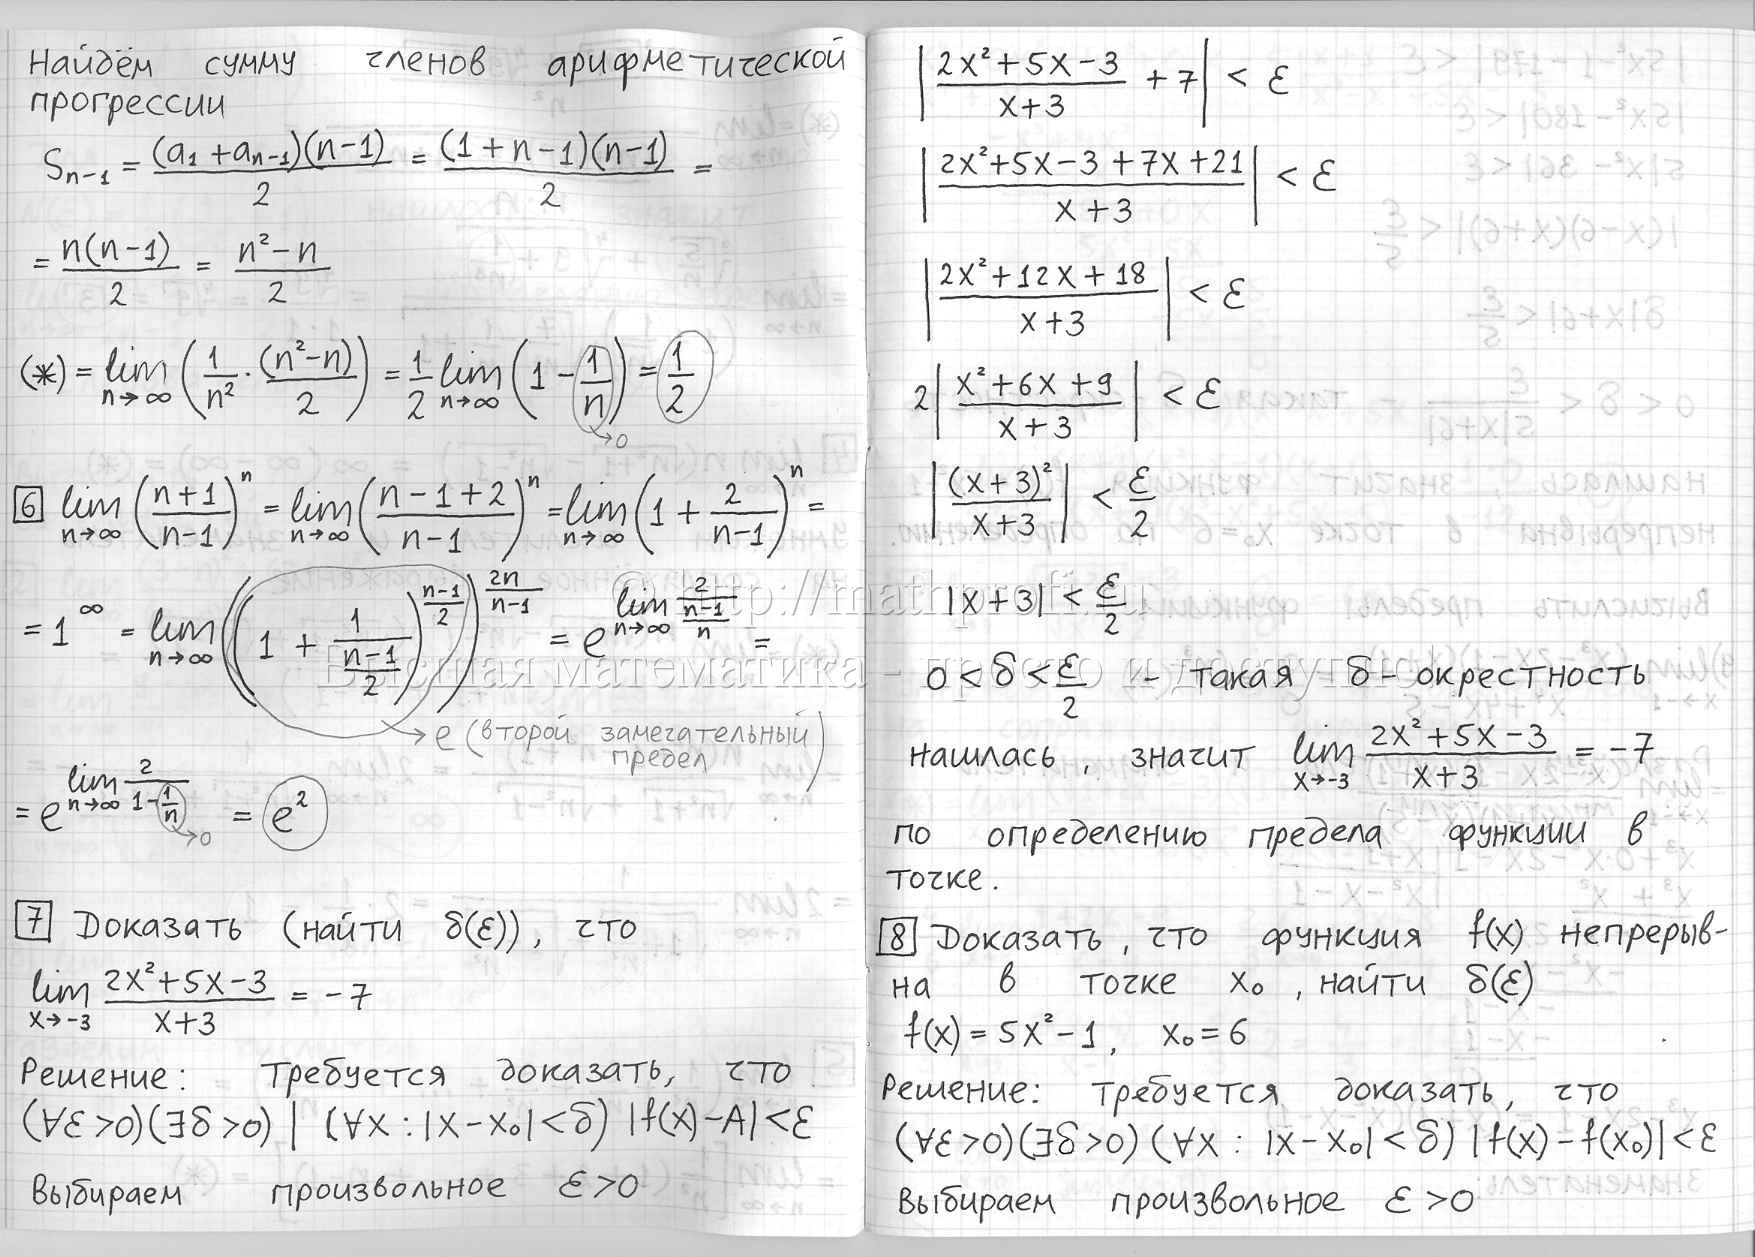 Найдём сумму членов арифметической
прогрессии
S_{n-1} = \frac{(a_1 + a_{n-1})(n-1)}{2} = \frac{(1 + n - 1)(n-1)}{2} =
= \frac{n(n-1)}{2} = \frac{n^2 - n}{2}
(*) = lim_{n→∞} (\frac{1}{n^2} · \frac{(n^2 - n)}{2}) = \frac{1}{2} lim_{n→∞} (1 - \frac{1}{n}) = \frac{1}{2}
→0
6 lim_{n→∞} (\frac{n+1}{n-1})^n = lim_{n→∞} (\frac{n-1+2}{n-1})^n = lim_{n→∞} (1 + \frac{2}{n-1})^n =
= 1^∞ = lim_{n→∞} ((1 + \frac{1}{\frac{n-1}{2}})^{\frac{n-1}{2}})^{\frac{2n}{n-1}} = e^{lim_{n→∞} \frac{2}{\frac{n-1}{n}}} =
→ e (второй замечательный
предел)
= e^{lim_{n→∞} \frac{2}{1 - \frac{1}{n}}} = e^2
→0
7 Доказать (найти δ(ε)), что
lim_{x→-3} \frac{2x^2 + 5x - 3}{x+3} = -7
Решение: требуется доказать, что
(∀ε>0)(∃δ>0) | (∀x : |x - x_0| < δ) |f(x) - A| < ε
Выбираем произвольное ε>0
|\frac{2x^2 + 5x - 3}{x+3} + 7| < ε
|\frac{2x^2 + 5x - 3 + 7x + 21}{x+3}| < ε
|\frac{2x^2 + 12x + 18}{x+3}| < ε
2|\frac{x^2 + 6x + 9}{x+3}| < ε
|\frac{(x+3)^2}{x+3}| < \frac{ε}{2}
|x+3| < \frac{ε}{2}
0 < δ < \frac{ε}{2} - такая δ - окрестность
нашлась, значит lim_{x→-3} \frac{2x^2 + 5x - 3}{x+3} = -7
по определению предела функции в
точке.
8 Доказать, что функция f(x) непрерыв-
на в точке x_0, найти δ(ε)
f(x) = 5x^2 - 1, x_0 = 6
Решение: требуется доказать, что
(∀ε>0)(∃δ>0) (∀x : |x - x_0| < δ) |f(x) - f(x_0)| < ε
Выбираем произвольное ε>0
© http://mathprofi.ru
Высшая математика - просто и доступно